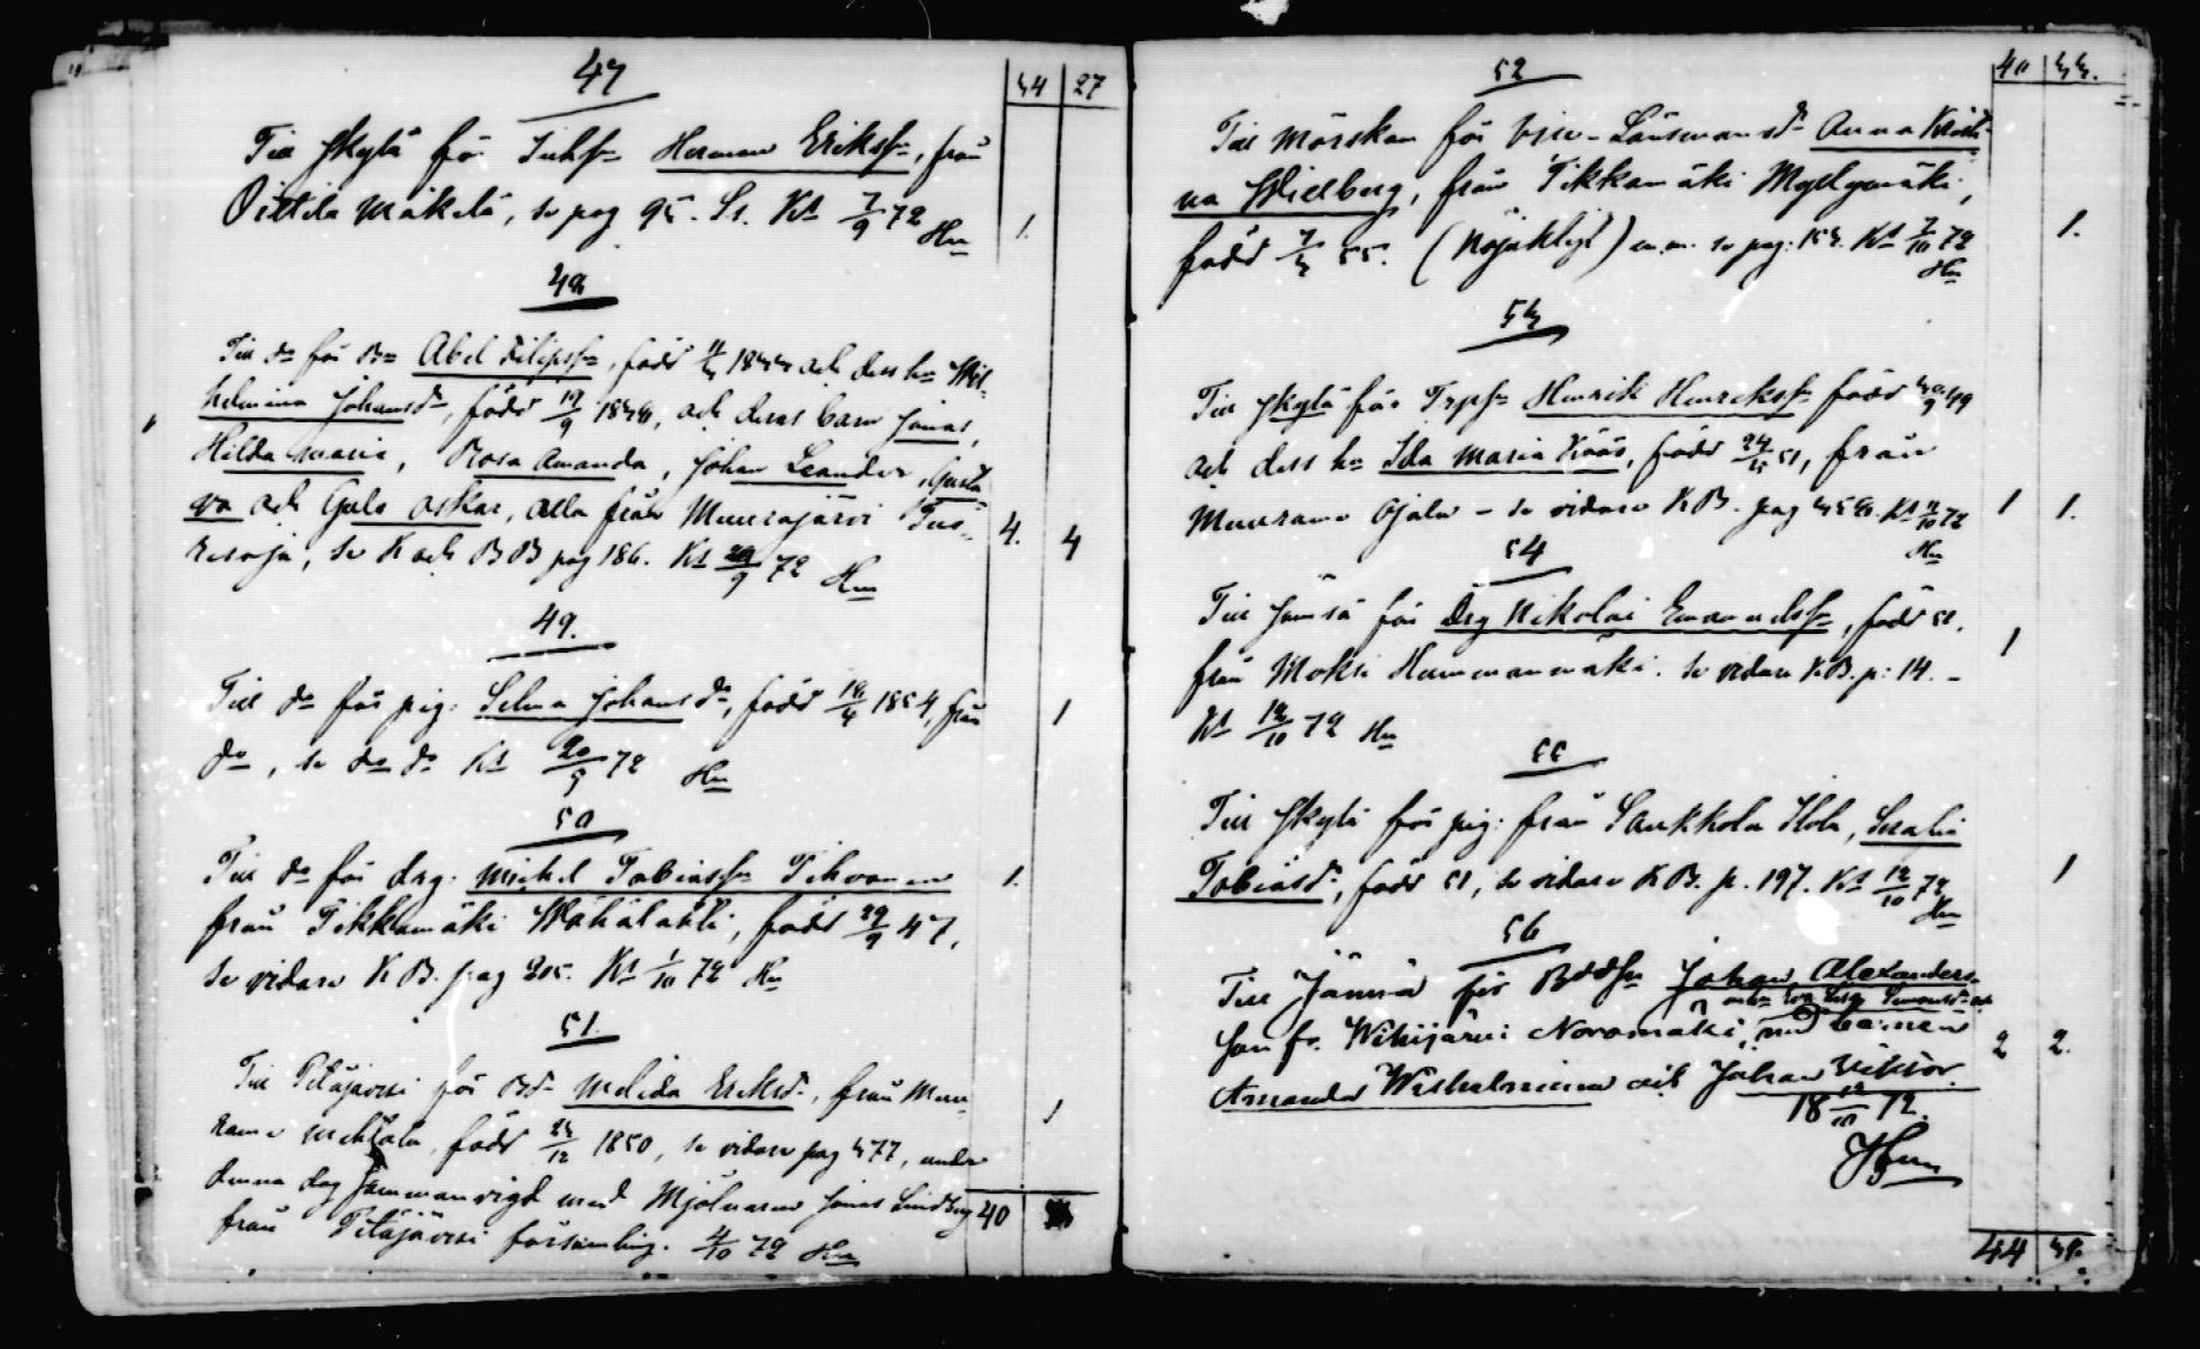 47
34 27
Till Jkylä för Inhsn Herman Erikssn, från
Oittila Mäkelä, se pag 95. S1. Kt 7/9 72 Hn
1.
48
Till do för Bn Abel Filipssn, född 1833 och dess h. Wil-
helmina Johansdr, född 19/9 1838, och deras barn Jonas,
Hilda Maria, Rosa Amanda, Johan Leander, Gusta-
va och Gula Oskar, alla från Muurajärvi
se K och BB pag 186. Kt 20/9 72 Hn
4. 4
49.
Till do för pig: Selma Johansdr, född 18/4 1854, från
do, se do do Kt 20/9 72 Hn
1
50
Till do för drg. Michel Tobiassn Tihvonen
från Tikkamäki Wähälahti, född 29/9 47,
se vidare KB. pag 205. Kt 1/10 72 Hn
1.
51.
Till Petäjävesi för Bdr Melida Eriksdr, från Muu-
rame Mehtola, född 23/12 1850, se vidare pag 377, under
denna dag sammanvigd med Mjölnaren Jonas Lindberg
från Petäjävesi församling. 4/10 72 Hn
1
40
52
40 33.
Till Mörskom för vice-Länsmansdr Anna Kristi-
na Widberg, från Tikkamäki Myllymäki,
född 7/3 55. (Nöjaktigt) m.m. se pag: 153. Kt 7/10 72
Hn
1.
53
Till Jkylä för Trpsn Henrik Henrikssn född 30/9 49
och dess h. Ida Maria Kääs, född 24/5 51, från
Muurame Ojala - se vidare KB. pag 358. Kt 11/10 72
Hn
1 1.
54
Till Jämsä för Drg Nikolai Emanuelssn, född 51,
från Moksi Hammanmäki. se vidare KB. p: 14. -
Kt 12/10 72 Hn
1
55
Till Jkylä för pig: från Saukkola Ilola, Serafia
Tobiasdr, född 51, se vidare KB. p. 197. Kt 12/10 72
Hn
1
56
Till Jämsä för Johan Alexanders-
och h. Eva Lisa Simonsdr
son fr. Wihijärvi Noromäki, med barnen
Amanda Wilhelmina och Johan Viktor.
18 12/10 72.
Hn
2 2.
44 38.